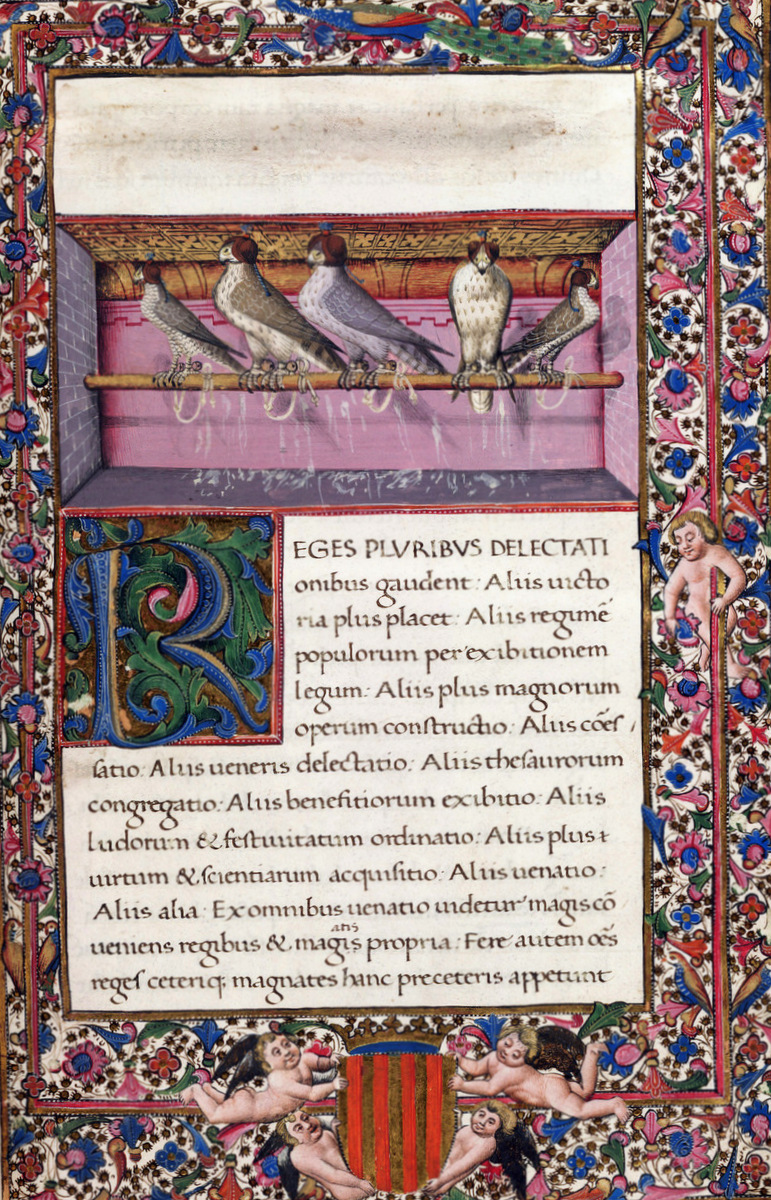 REGES PLVRIBVS DELECTATI
onibus gaudent: Aliis uicto
ria plus placet: Aliis regimē
populorum per exibitionem
legum: Aliis plus magnorum
operum constructio: Aliis cōes
satio: Aliis ueneris delectatio: Aliis thesaurorum
congregatio: Aliis benefitiorum exibitio: Aliis
ludorum & festiuitatum ordinatio: Aliis plus
uirtum & scientiarum acquisitio: Aliis uenatio:
Aliis alia: Ex omnibus uenatio uidetur magis cō
atis
ueniens regibus & magis propria: Fere autem oēs
reges ceteriq; magnates hanc preceteris appetunt